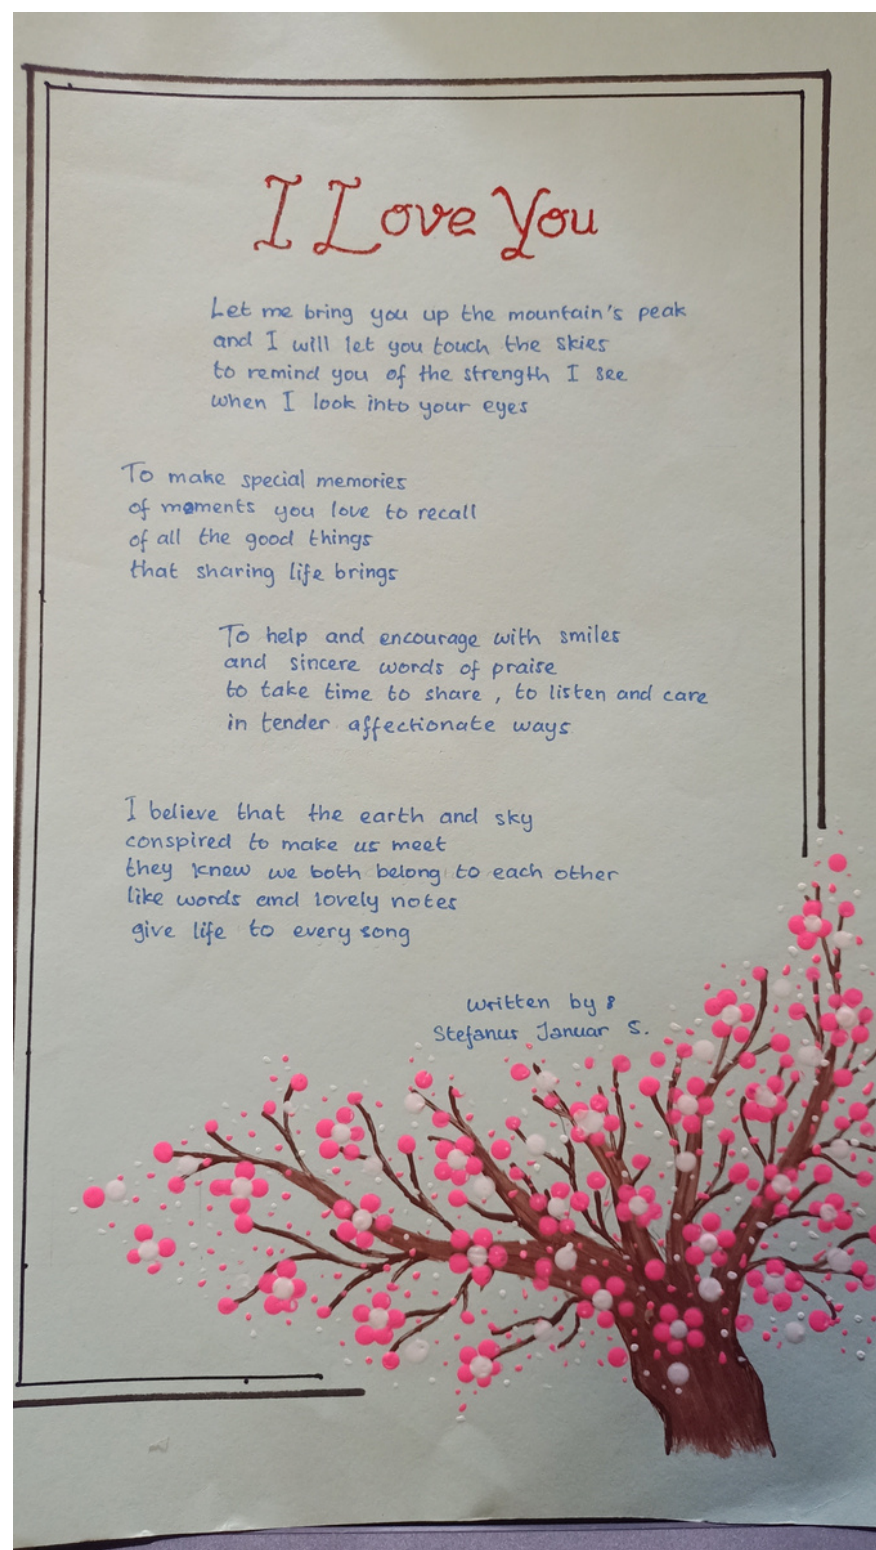 I Love You
Let me bring you up the mountain's peak
and I will let you touch the skies
to remind you of the strength I see
when I look into your eyes
To make special memories
of moments you love to recall
of all the good things
that sharing life brings
To help and encourage with smiles
and sincere words of praise
to take time to share , to listen and care
in tender affectionate ways
I believe that the earth and sky
conspired to make us meet
they knew we both belong to each other
like words and lovely notes
give life to every song
written by :
Stefanus Januar S.